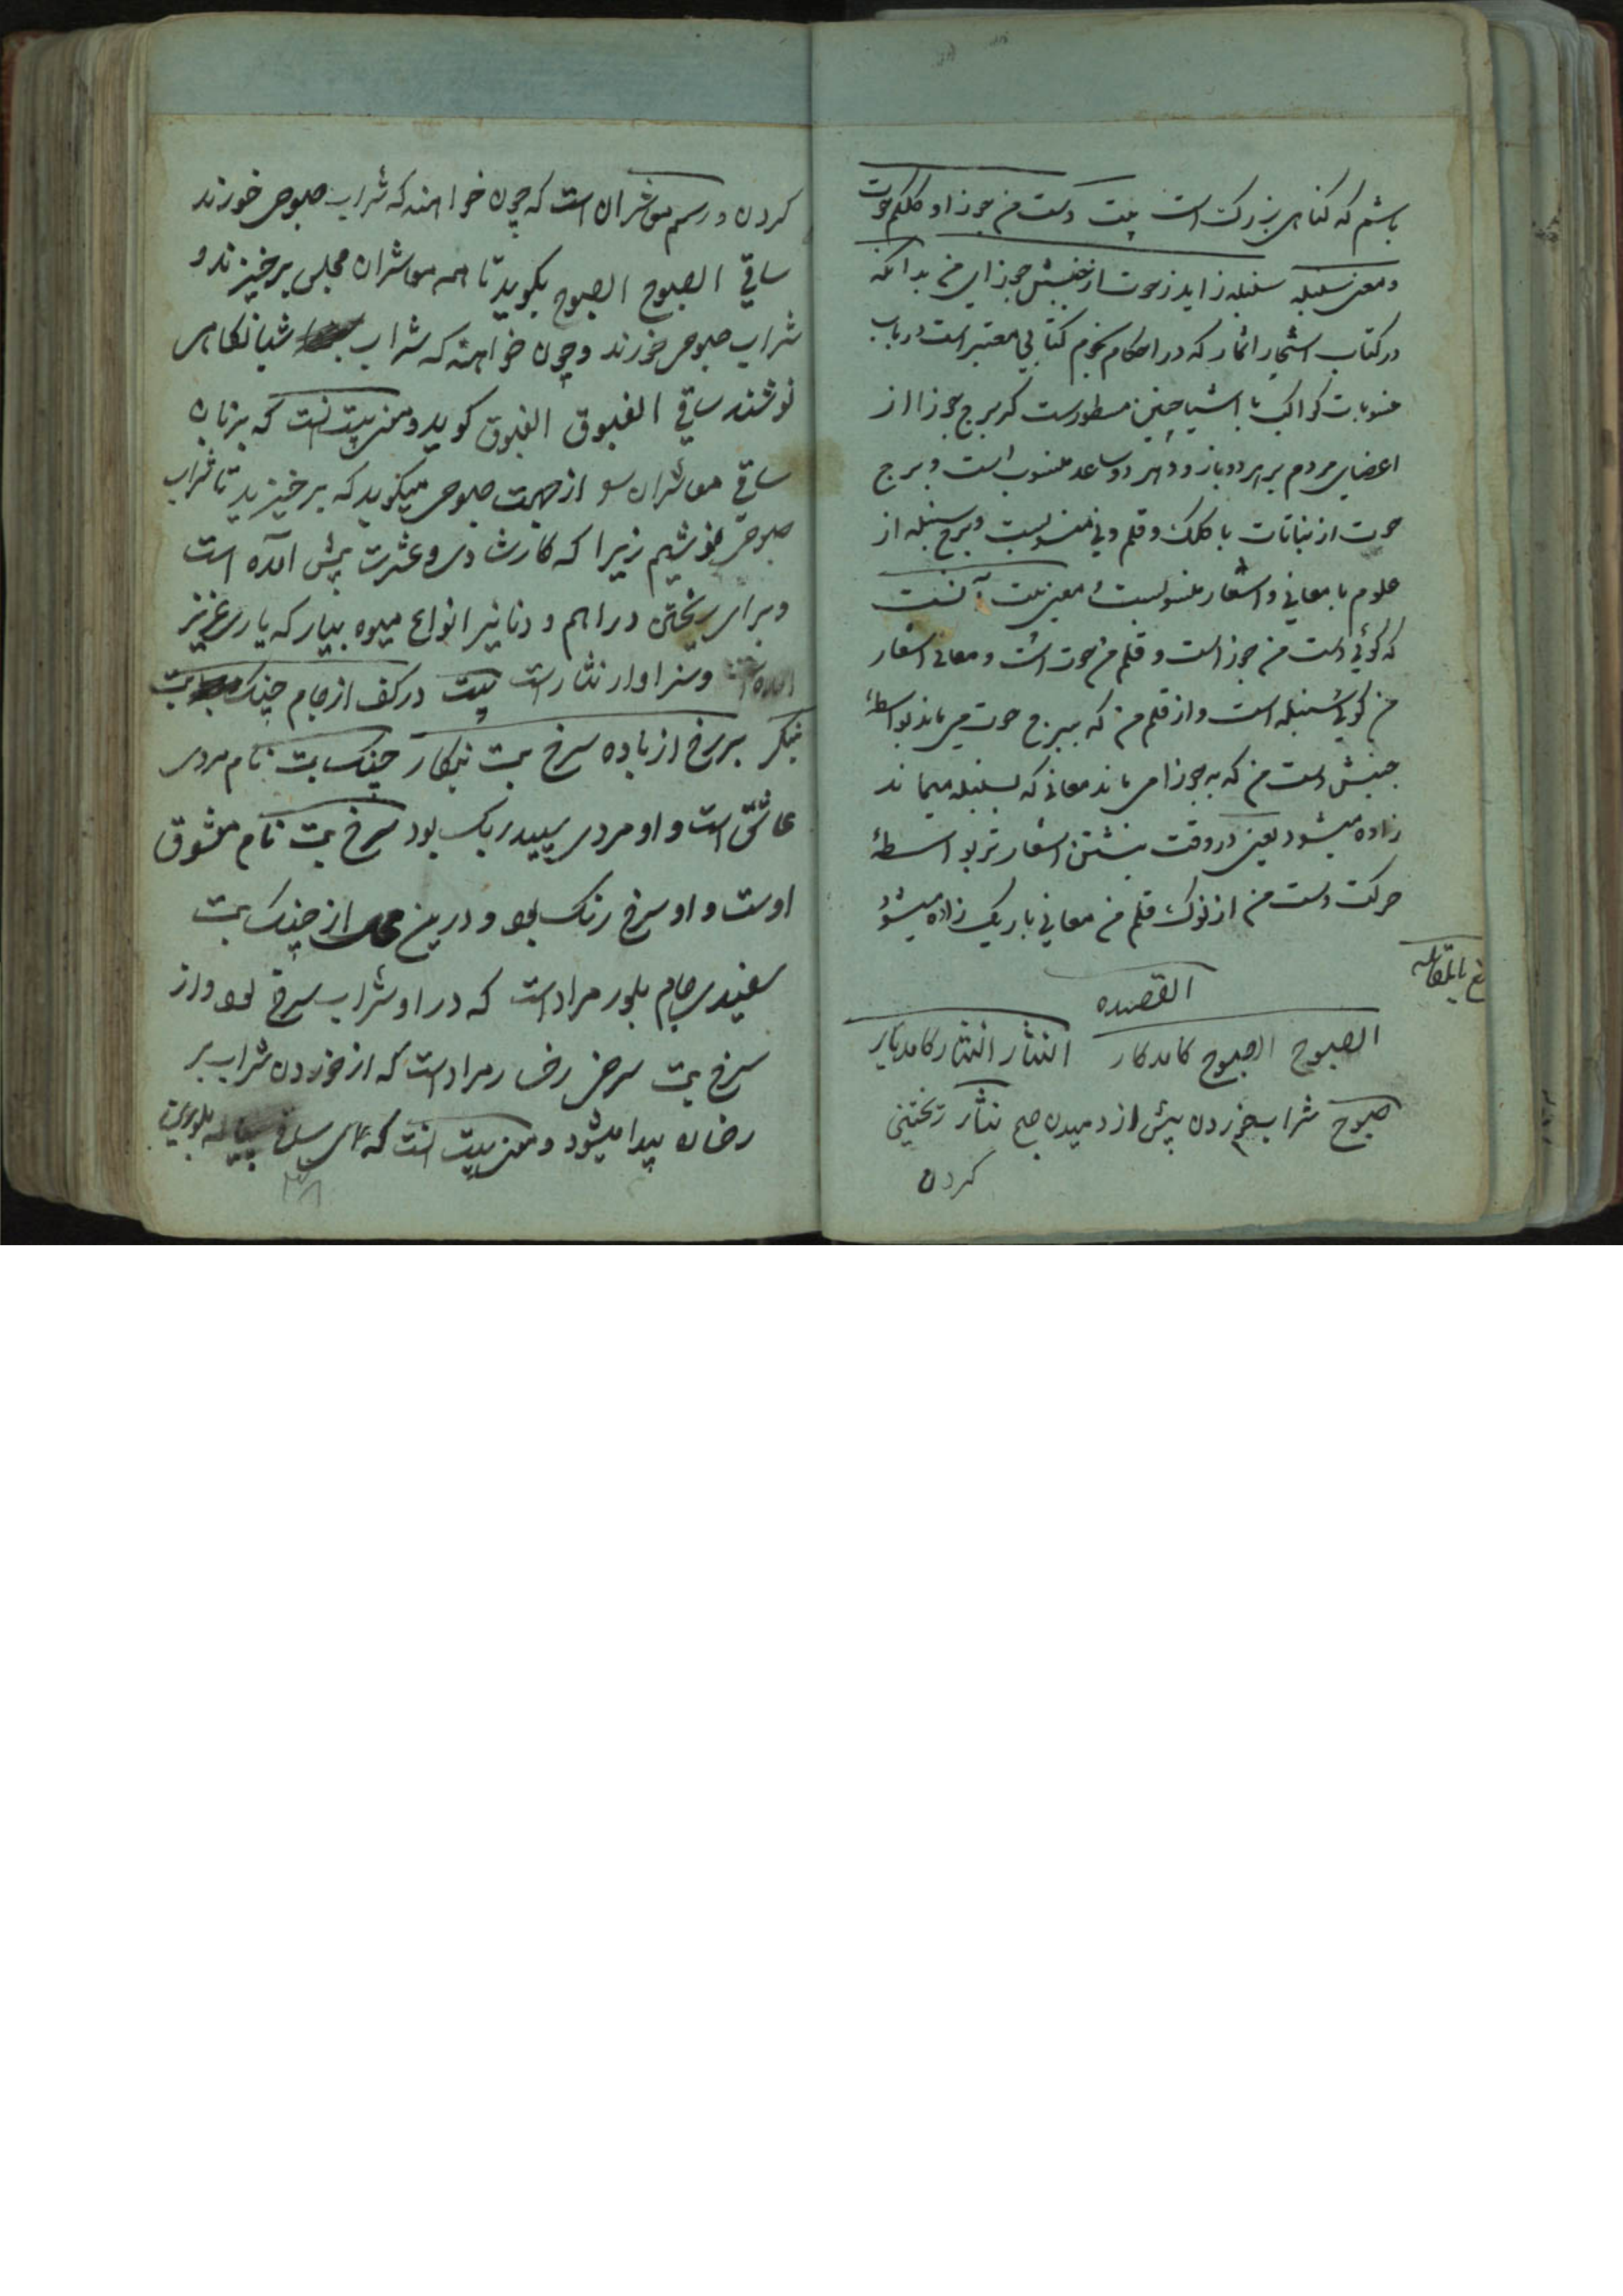 باشم که کناهی بزرکست بیت دست من جوزا و کلکم حوت
و معنی سنبله سنبله زاید زحوت از جنبش جوزای من بدانکه
در کتاب اشجار اثمار که در احکام نجوم کتابی معتبر است در باب
منسوبات کواکب با اشیا چنین مسطورست که برج جوزا از
اعضای مردم بر هر دو بازو و هر دو ساعد منسوب است و برج
حوت از نباتات با کلک و قلم و نی منسوبست و برج سنبله از
علوم با معانی و اشعار منسوبست معنی بیت آنست
که کوئی دست من جوزاست و قلم من حوت است و معانی اشعار
من کوئی سنبله است و از قلم من که ببرج حوت می ماند بواسطهٔ
جنبش دست من که به جوزا می ماند معانی که بسنبله میماند
زاده میشود یعنی در وقت نبشتن اشعار تر بواسطهٔ
حرکت دست من از نوک قلم من معانی باریک زاده میشود
بالمقابله
القصیده
الصبوح الصبوح کامد کار النثار النثار کامد یار
صبوح شراب خوردن پیش از دمیدن صبح نثار ریختنی
کردن
کردن و رسم معاشران است که چون خواهند که شراب صبوحی خورند
ساقی الصبوح الصبوح بکوید تا همه معاشران مجلس برخیزند و
شراب صبوحی خورند و چون خواهند که شراب شبانکاهی
نوشند ساقی الغبوق الغبوق کوید و معنی بیت آنست که بزبان
ساقی معاشران از جهت صبوحی میکوید که برخیزید تا شراب
صبوحی نوشیم زیرا که کار شادی و عشرت پیش آمده است
و برای ریختن دراهم و دنانیر انواع میوه بیار که یاری عزیز
آمده است و سزاوار نثارست بیت در کف از جام خنک بت
بنکر بر رخ از باده سرخ بت بنکار خنک بت نام مردی
عاشق است و او مردی سپید رنک بود سرخ بت نام معشوق
اوست و او سرخ رنک بود و درین محل از خنک بت
سفیدی جام بلور مرادست که در او شراب سرخ بود و از
سرخ بت سرخی رخسار مرادست که از خوردن شراب بر
رخسار پیدا میشود و معنی بیت آنست که ای ساقی پیاله بلورین